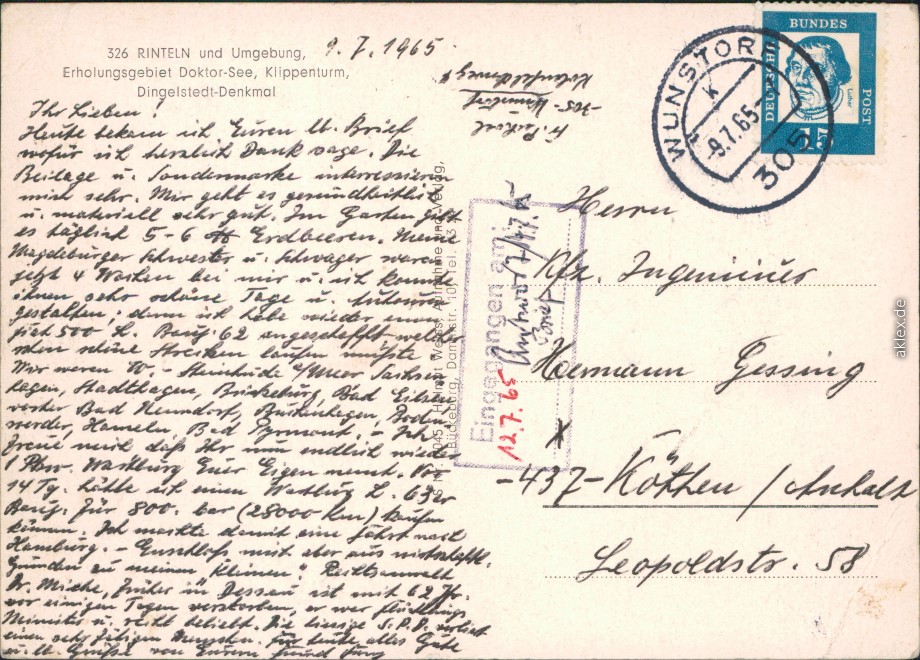 326 RINTELN und Umgebung,
Erholungsgebiet Doktor-See, Klippenturm,
Dingelstedt-Denkmal
9.7.1965
Ihr Lieben!
Heute bekam ich Euren lb. Brief
wofür ich herzlich Dank sage. Die
Beilage u. Sondermarke interressieren
mich sehr. Mir geht es gesundheitlich
u. materiell sehr gut. Im Garten gibt
es täglich 5-6 Erdbeeren. Meine
Magdeburger Schwester u. Schwager waren
jetzt 4 Wochen bei mir u. ich konnte
ihnen sehr schöne Tage u.
gestalten; denn ich habe wieder einen
Fiat 500 L. Bauj. 62 angeschafft, welcher
schon schöne Strecken laufen müsste
Wir waren Steinhude a/Meer Sachsen
hagen, Stadthagen, Bückeburg, Bad Eilsen
vorher Bad Nenndorf, Boden
werder, Hameln Bad Pyrmont. Ich
freue mich daß Ihr nun endlich wieder
1 Pkw. Wartburg Euer Eigen nennt. Vor
14 Tg. hätte ich einen Wartburg L. 63er
Bauj. für 800. bar (28000 Km) kaufen
können. Ich machte damit eine Fahrt nach
Hamburg. - Entschloß mich aber aus wirtschaftl.
Gründen zu meinen "Kleinen". Rechtsanwalt
Dr. Miche, früher in Dessau ist mit 62 Jhr.
vor einigen Tagen verstorben, er war
Minister u. recht beliebt. Die hiesige S.P.D. verliert
einen sehr fähigen Menschen. Für heute alles Gute
u. lb. Grüße von Eurem Freund
305 Wunstorf
3045 Helmut Weiss, Aufnahme und Verlag,
Bückeburg, Dammstr. 10, Tel.
Eingegangen am:
12.7.65
Antwort
Brief
WUNSTORF
k
-9.7.65-
305
DEUTSCHE
BUNDES
POST
Luther
15
Herrn
Kfz. Ingenieur
Hermann Gessing
-437- Köthen / Anhalt
Leopoldstr. 58
aklex.de